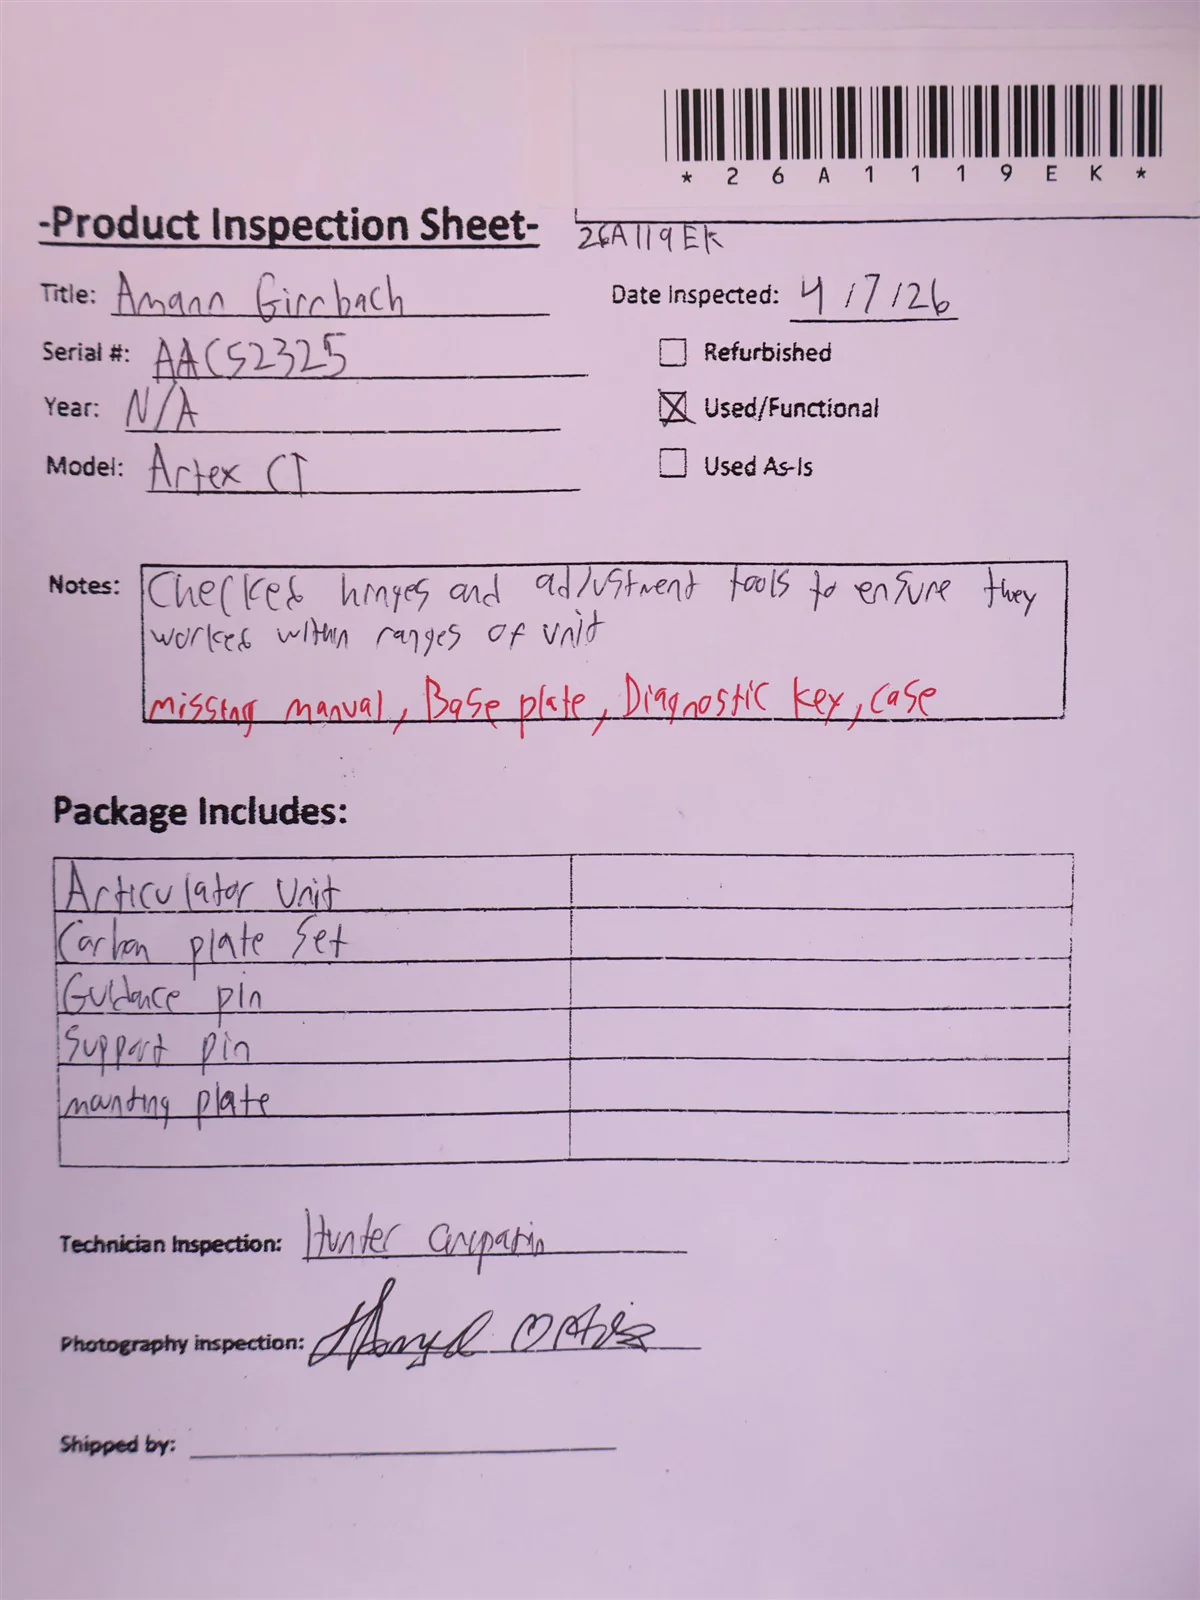 *26A1119EK*
-Product Inspection Sheet-
26A119EK
Title: Amann Girrbach
Date Inspected: 4/7/26
Serial #: AACS2325
Refurbished
Year: N/A
Used/Functional
Model: Artex CT
Used As-Is
Notes: Checked hinges and adjustment tools to ensure they
worked within ranges of unit
missing manual, Base plate, Diagnostic key, case
Package Includes:
Articulator Unit
Carbon plate set
Guidance pin
Support pin
mounting plate
Technician Inspection: Hunter
Photography inspection: Ortiz
Shipped by: